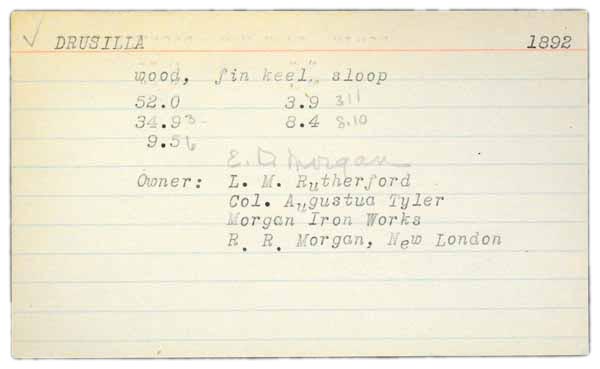 DRUSILLA 1892
wood, fin keel, sloop
52.0 3.9 3 11
34.9 3 8.4 8.10
9.5 6
E. D. Morgan
Owner: L. M. Rutherford
Col. Augustua Tyler
Morgan Iron Works
R. R. Morgan, New London